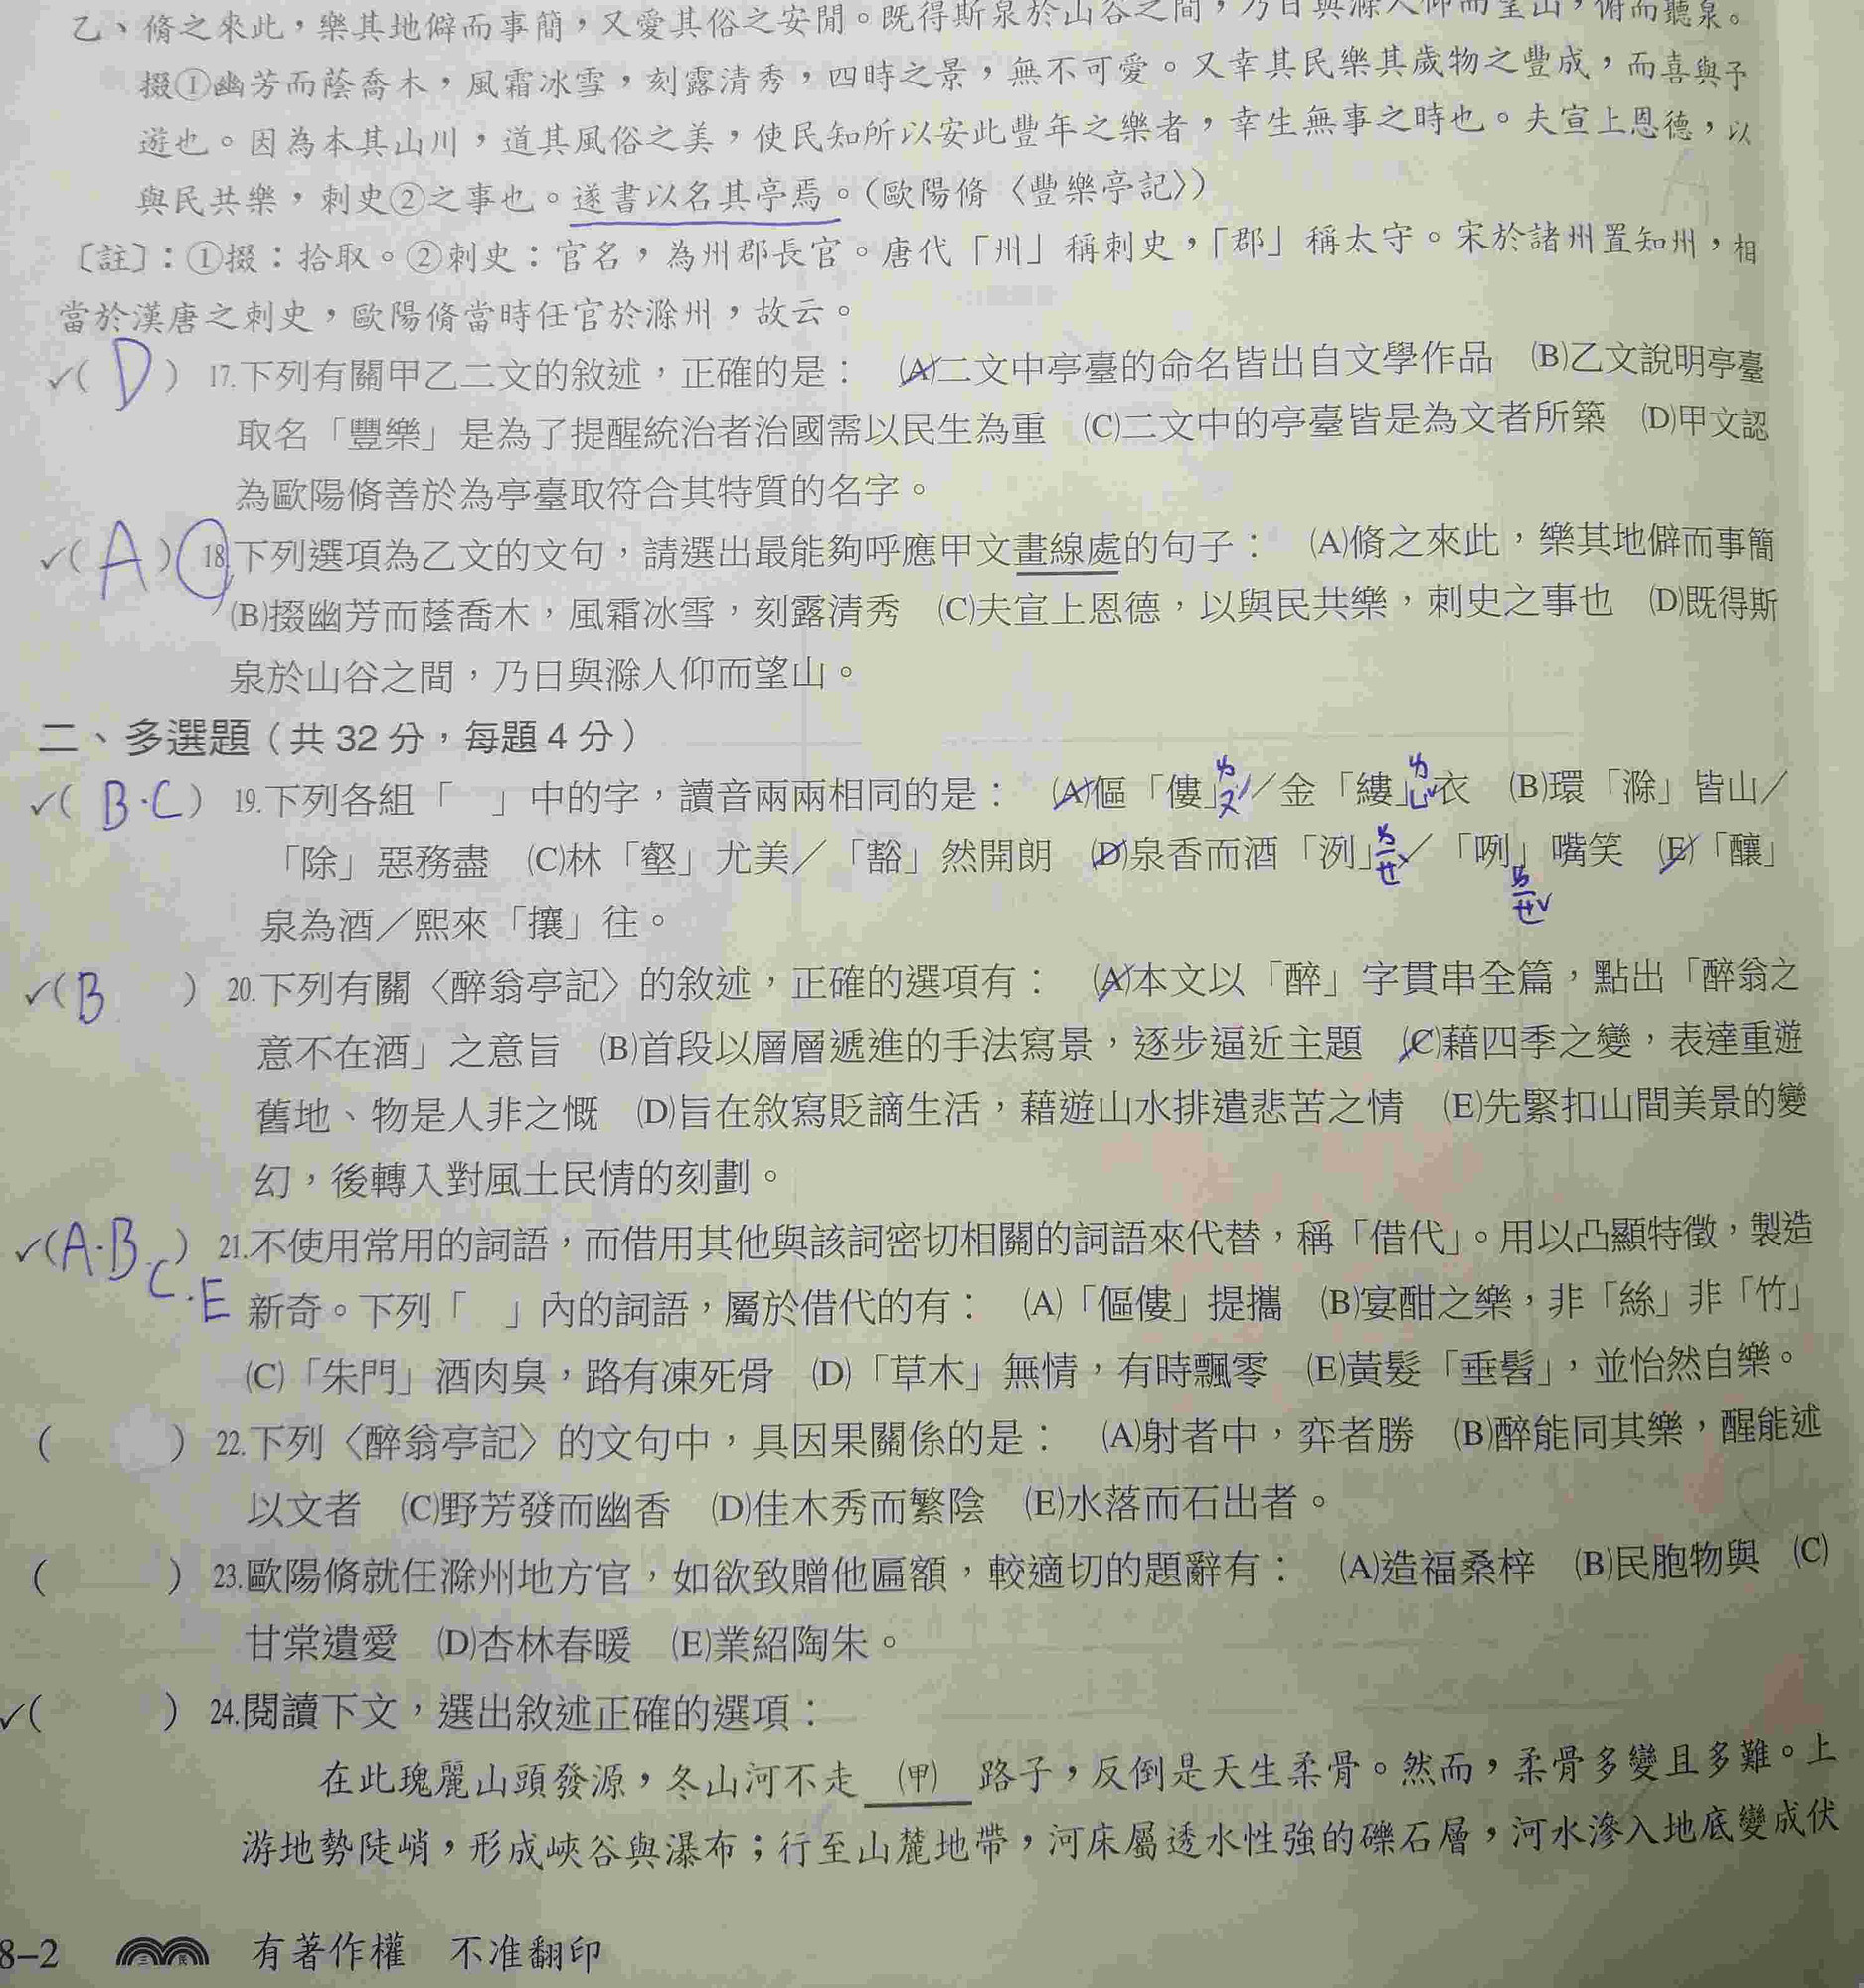 乙、脩之來此，樂其地僻而事簡，又愛其俗之安閒。既得斯泉於山谷之間，乃日與滁人仰而望山，俯而聽泉。
掇①幽芳而蔭喬木，風霜冰雪，刻露清秀，四時之景，無不可愛。又幸其民樂其歲物之豐成，而喜與予
遊也。因為本其山川，道其風俗之美，使民知所以安此豐年之樂者，幸生無事之時也。夫宣上恩德，以
與民共樂，刺史②之事也。遂書以名其亭焉。（歐陽脩〈豐樂亭記〉）
〔註〕：①掇：拾取。②刺史：官名，為州郡長官。唐代「州」稱刺史，「郡」稱太守。宋於諸州置知州，相
當於漢唐之刺史，歐陽脩當時任官於滁州，故云。
✓( D ) 17.下列有關甲乙二文的敘述，正確的是： (A)二文中亭臺的命名皆出自文學作品 (B)乙文說明亭臺
取名「豐樂」是為了提醒統治者治國需以民生為重 (C)二文中的亭臺皆是為文者所築 (D)甲文認
為歐陽脩善於為亭臺取符合其特質的名字。
✓( A ) 18.下列選項為乙文的文句，請選出最能夠呼應甲文畫線處的句子： (A)脩之來此，樂其地僻而事簡
(B)掇幽芳而蔭喬木，風霜冰雪，刻露清秀 (C)夫宣上恩德，以與民共樂，刺史之事也 (D)既得斯
泉於山谷之間，乃日與滁人仰而望山。
二、多選題（共 32 分，每題 4 分）
✓( B.C ) 19.下列各組「 」中的字，讀音兩兩相同的是： (A)傴「僂」ㄌㄡˊ／金「縷」ㄌㄩˇ衣 (B)環「滁」皆山／
「除」惡務盡 (C)林「壑」尤美／「豁」然開朗 (D)泉香而酒「洌」ㄌㄧㄝˋ／「咧」ㄌㄧㄝˇ嘴笑 (E)「釀」
泉為酒／熙來「攘」往。
✓( B ) 20.下列有關〈醉翁亭記〉的敘述，正確的選項有： (A)本文以「醉」字貫串全篇，點出「醉翁之
意不在酒」之意旨 (B)首段以層層遞進的手法寫景，逐步逼近主題 (C)藉四季之變，表達重遊
舊地、物是人非之慨 (D)旨在敘寫貶謫生活，藉遊山水排遣悲苦之情 (E)先緊扣山間美景的變
幻，後轉入對風土民情的刻劃。
✓( A.B.C.E ) 21.不使用常用的詞語，而借用其他與該詞密切相關的詞語來代替，稱「借代」。用以凸顯特徵，製造
新奇。下列「 」內的詞語，屬於借代的有： (A)「傴僂」提攜 (B)宴酣之樂，非「絲」非「竹」
(C)「朱門」酒肉臭，路有凍死骨 (D)「草木」無情，有時飄零 (E)黃髮「垂髫」，並怡然自樂。
( ) 22.下列〈醉翁亭記〉的文句中，具因果關係的是： (A)射者中，弈者勝 (B)醉能同其樂，醒能述
以文者 (C)野芳發而幽香 (D)佳木秀而繁陰 (E)水落而石出者。
( ) 23.歐陽脩就任滁州地方官，如欲致贈他匾額，較適切的題辭有： (A)造福桑梓 (B)民胞物與 (C)
甘棠遺愛 (D)杏林春暖 (E)業紹陶朱。
✓( ) 24.閱讀下文，選出敘述正確的選項：
在此瑰麗山頭發源，冬山河不走 (甲) 路子，反倒是天生柔骨。然而，柔骨多變且多難。上
游地勢陡峭，形成峽谷與瀑布；行至山麓地帶，河床屬透水性強的礫石層，河水滲入地底變成伏
8-2 三民 有著作權 不准翻印